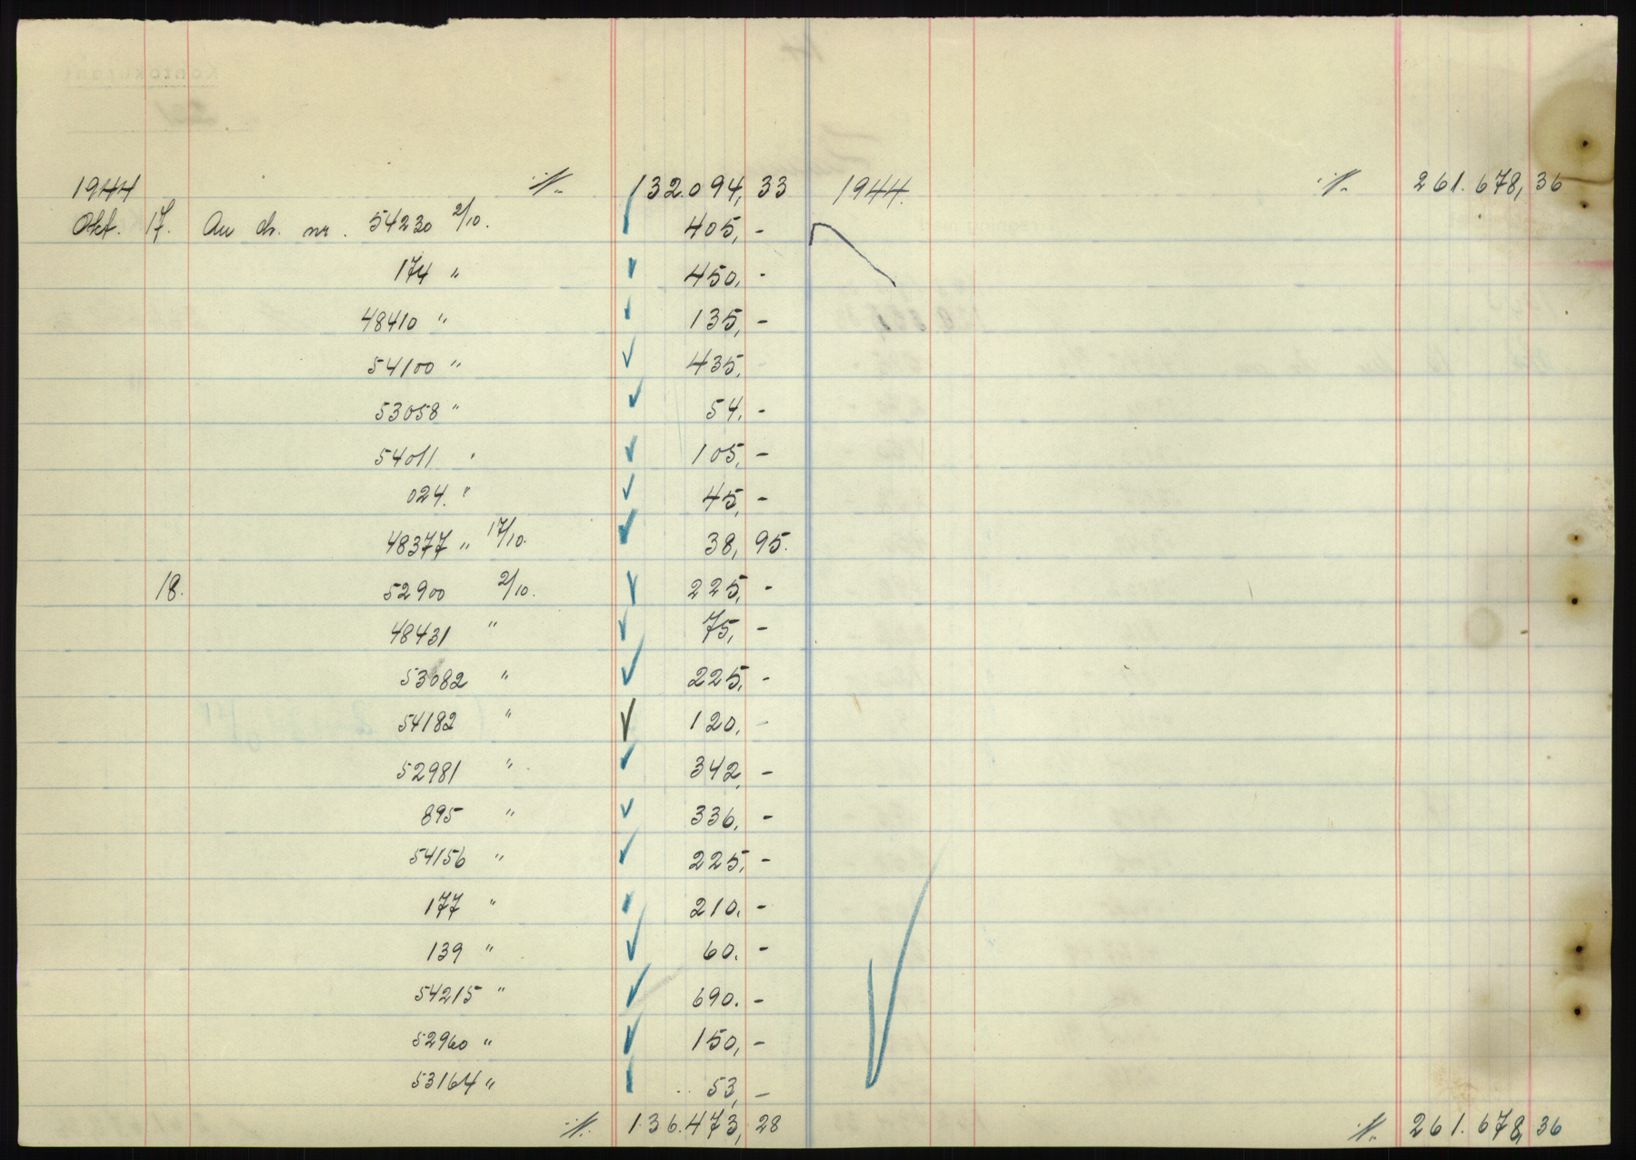 1944 ·/. 132.094,33 1944. ·/. 261.678,36
Okt. 17. An ch. nr. 54230 2/10. 405,-
174 " 450,-
48410 " 135,-
54100 " 435,-
53058 " 54,-
54011 " 105,-
024. " 45,-
48377 " 17/10. 38,95.
18. 52900 2/10. 225,-
48431 " 75,-
53082 " 225,-
54182 " 120,-
52981 " 342,-
895 " 336,-
54156 " 225,-
177 " 210,-
139 " 60.-
54215 " 690.-
52960 " 150,-
53164 " 53,-
·/. 136.473,28 ·/. 261.678,36